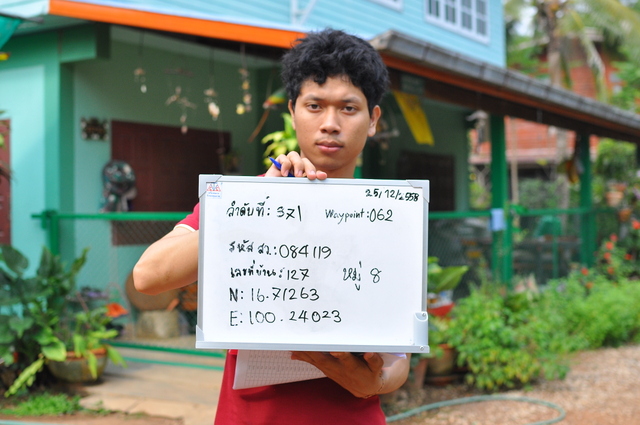 25/12/2558
ลำดับที่: 371 Waypoint: 062
รหัส สว.: 084119
เลขที่บ้าน: 127 หมู่ 8
N: 16.71263
E: 100.24023